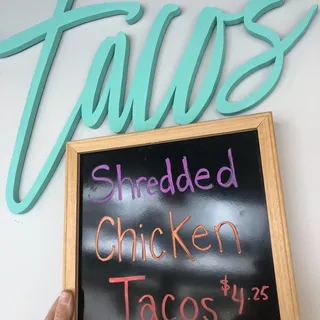 tacos
Shredded
Chicken
Tacos $4.25